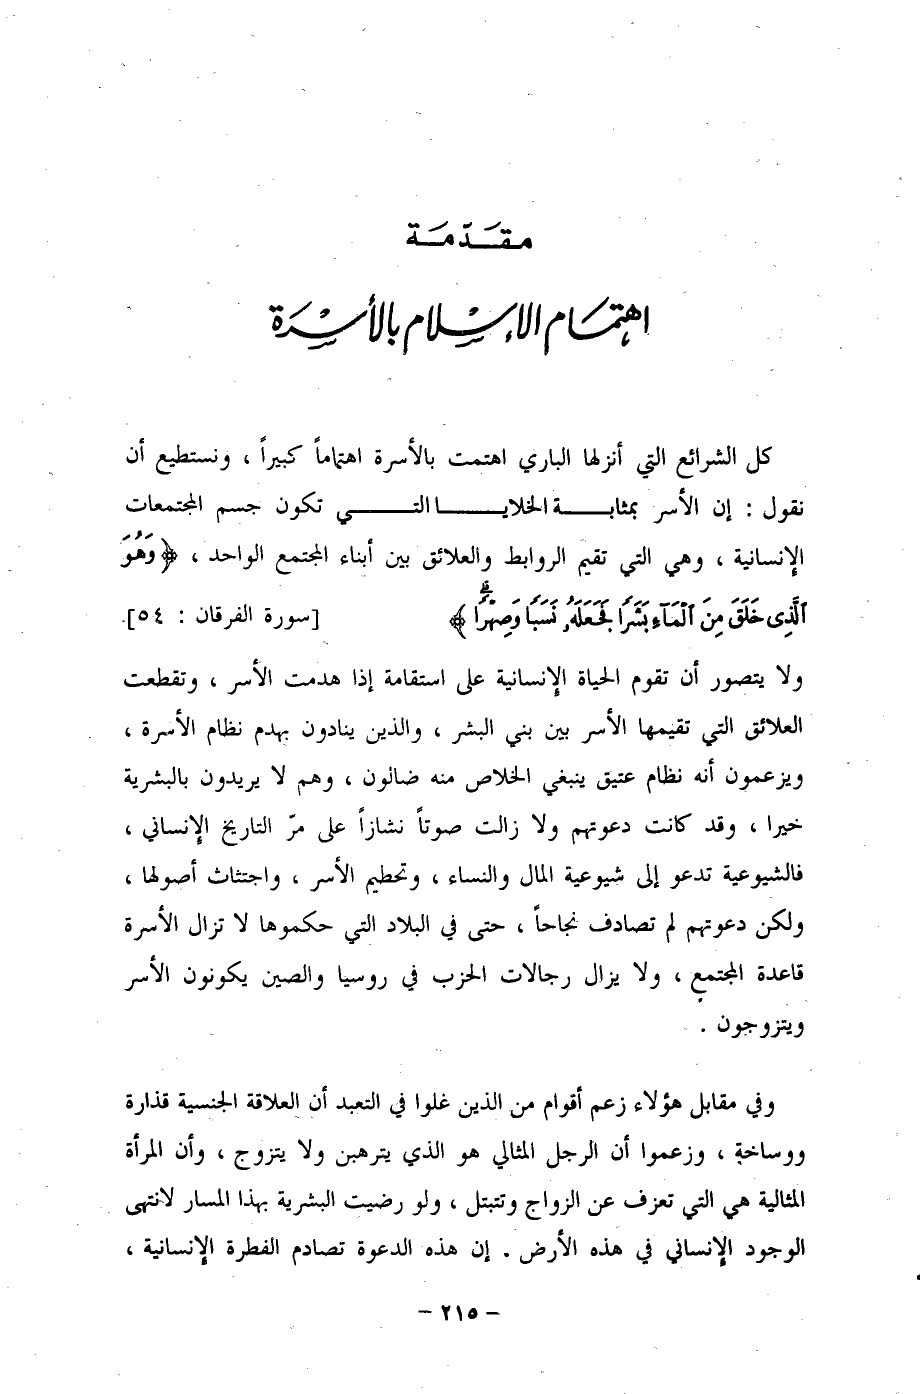 مقدمة
اهتمام الإسلام بالأسرة
كل الشرائع التي أنزلها الباري اهتمت بالأسرة اهتماماً كبيراً ، ونستطيع أن
نقول : إن الأسر بمثابة الخلايا التي تكون جسم المجتمعات
الإنسانية ، وهي التي تقيم الروابط والعلائق بين أبناء المجتمع الواحد ، ﴿ وَهُوَ
ٱلَّذِى خَلَقَ مِنَ ٱلْمَآءِ بَشَرًا فَجَعَلَهُۥ نَسَبًا وَصِهْرًا ۗ ﴾ [سورة الفرقان : ٥٤].
ولا يتصور أن تقوم الحياة الإنسانية على استقامة إذا هدمت الأسر ، وتقطعت
العلائق التي تقيمها الأسر بين بني البشر ، والذين ينادون بهدم نظام الأسرة ،
ويزعمون أنه نظام عتيق ينبغي الخلاص منه ضالون ، وهم لا يريدون بالبشرية
خيرا ، وقد كانت دعوتهم ولا زالت صوتاً نشازاً على مرّ التاريخ الإنساني ،
فالشيوعية تدعو إلى شيوعية المال والنساء ، وتحطيم الأسر ، واجتثاث أصولها ،
ولكن دعوتهم لم تصادف نجاحاً ، حتى في البلاد التي حكموها لا تزال الأسرة
قاعدة المجتمع ، ولا يزال رجالات الحزب في روسيا والصين يكونون الأسر
ويتزوجون .
وفي مقابل هؤلاء زعم أقوام من الذين غلوا في التعبد أن العلاقة الجنسية قذارة
ووساخة ، وزعموا أن الرجل المثالي هو الذي يترهبن ولا يتزوج ، وأن المرأة
المثالية هي التي تعزف عن الزواج وتتبتل ، ولو رضيت البشرية بهذا المسار لانتهى
الوجود الإنساني في هذه الأرض . إن هذه الدعوة تصادم الفطرة الإنسانية ،
- ٢١٥ -